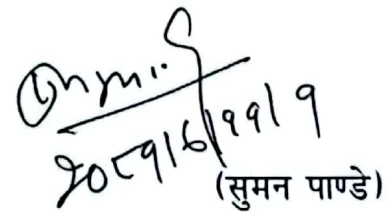 २०८१/६/११/१
(सुमन पाण्डे)